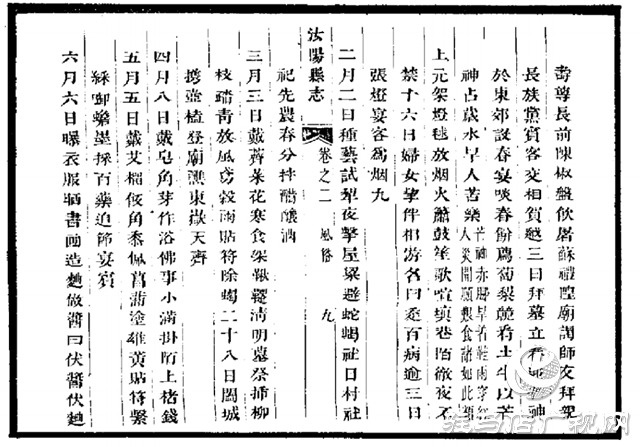 尊長前陳椒盤飲屠蘇禮隍廟謁師友拜聚
長族黨賀客交相賀越三日拜墓立春 神
於東郊設春宴啖春餅薦蔔梨競看土牛以芒
神占歲水旱人苦樂
上元架燈毬放烟火簫鼓笙歌喧填巷陌徹夜不
禁十六日婦女擎伴相游名曰走百病逾三日
張燈宴客為烟九
二月二日種藝試犂夜擊屋梁避蛇蝎社日村社
汝陽縣志 卷之二 風俗 九
祀先農春分拌醋釀酒
三月三日戴薺菜花寒食架鞦韆清明墓祭挿柳
枝踏青放風鳶穀雨貼符除蝎二十八日闔城
攜壺榼登廟醮東嶽天齊
四月八日戴皂角芽作浴佛事小滿掛陌上楮錢
五月五日戴艾榴佽角黍佩菖蒲塗雄黃貼符繫
綵 墨採百藥追節宴賓
六月六日曝衣服晒書畫造麵做醬曰伏醬伏麵
驻马店广视网